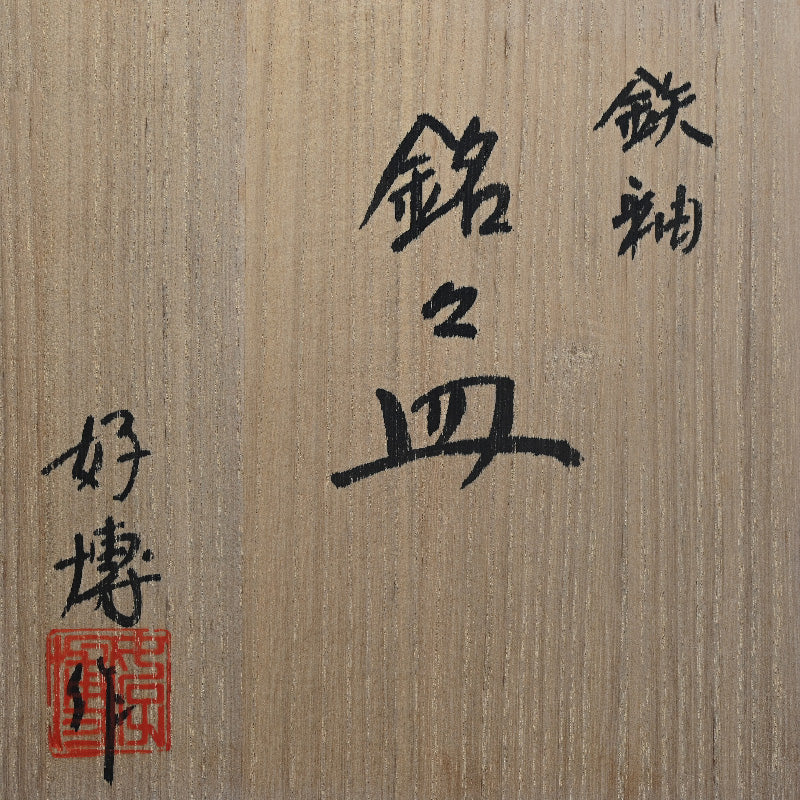 鉄釉
銘々皿
好博
作